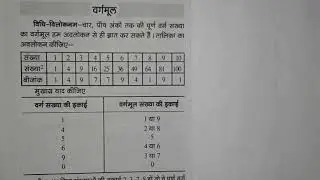 वर्गमूल
विधि-विलोकनम–चार, पाँच अंकों तक की पूर्ण वर्ग संख्या
का वर्गमूल हम अवलोकन से ही ज्ञात कर सकते हैं। तालिका का
अवलोकन कीजिए–
संख्या 1 2 3 4 5 6 7 8 9 10
संख्या² 1 4 9 16 25 36 49 64 81 100
बीजांक 1 4 9 7 7 9 4 1 9 1
मुखाग्र याद कीजिए
वर्ग संख्या की इकाई वर्गमूल संख्या की इकाई
1 1 या 9
4 2 या 8
5 5
6 4 या 6
9 3 या 7
0 0